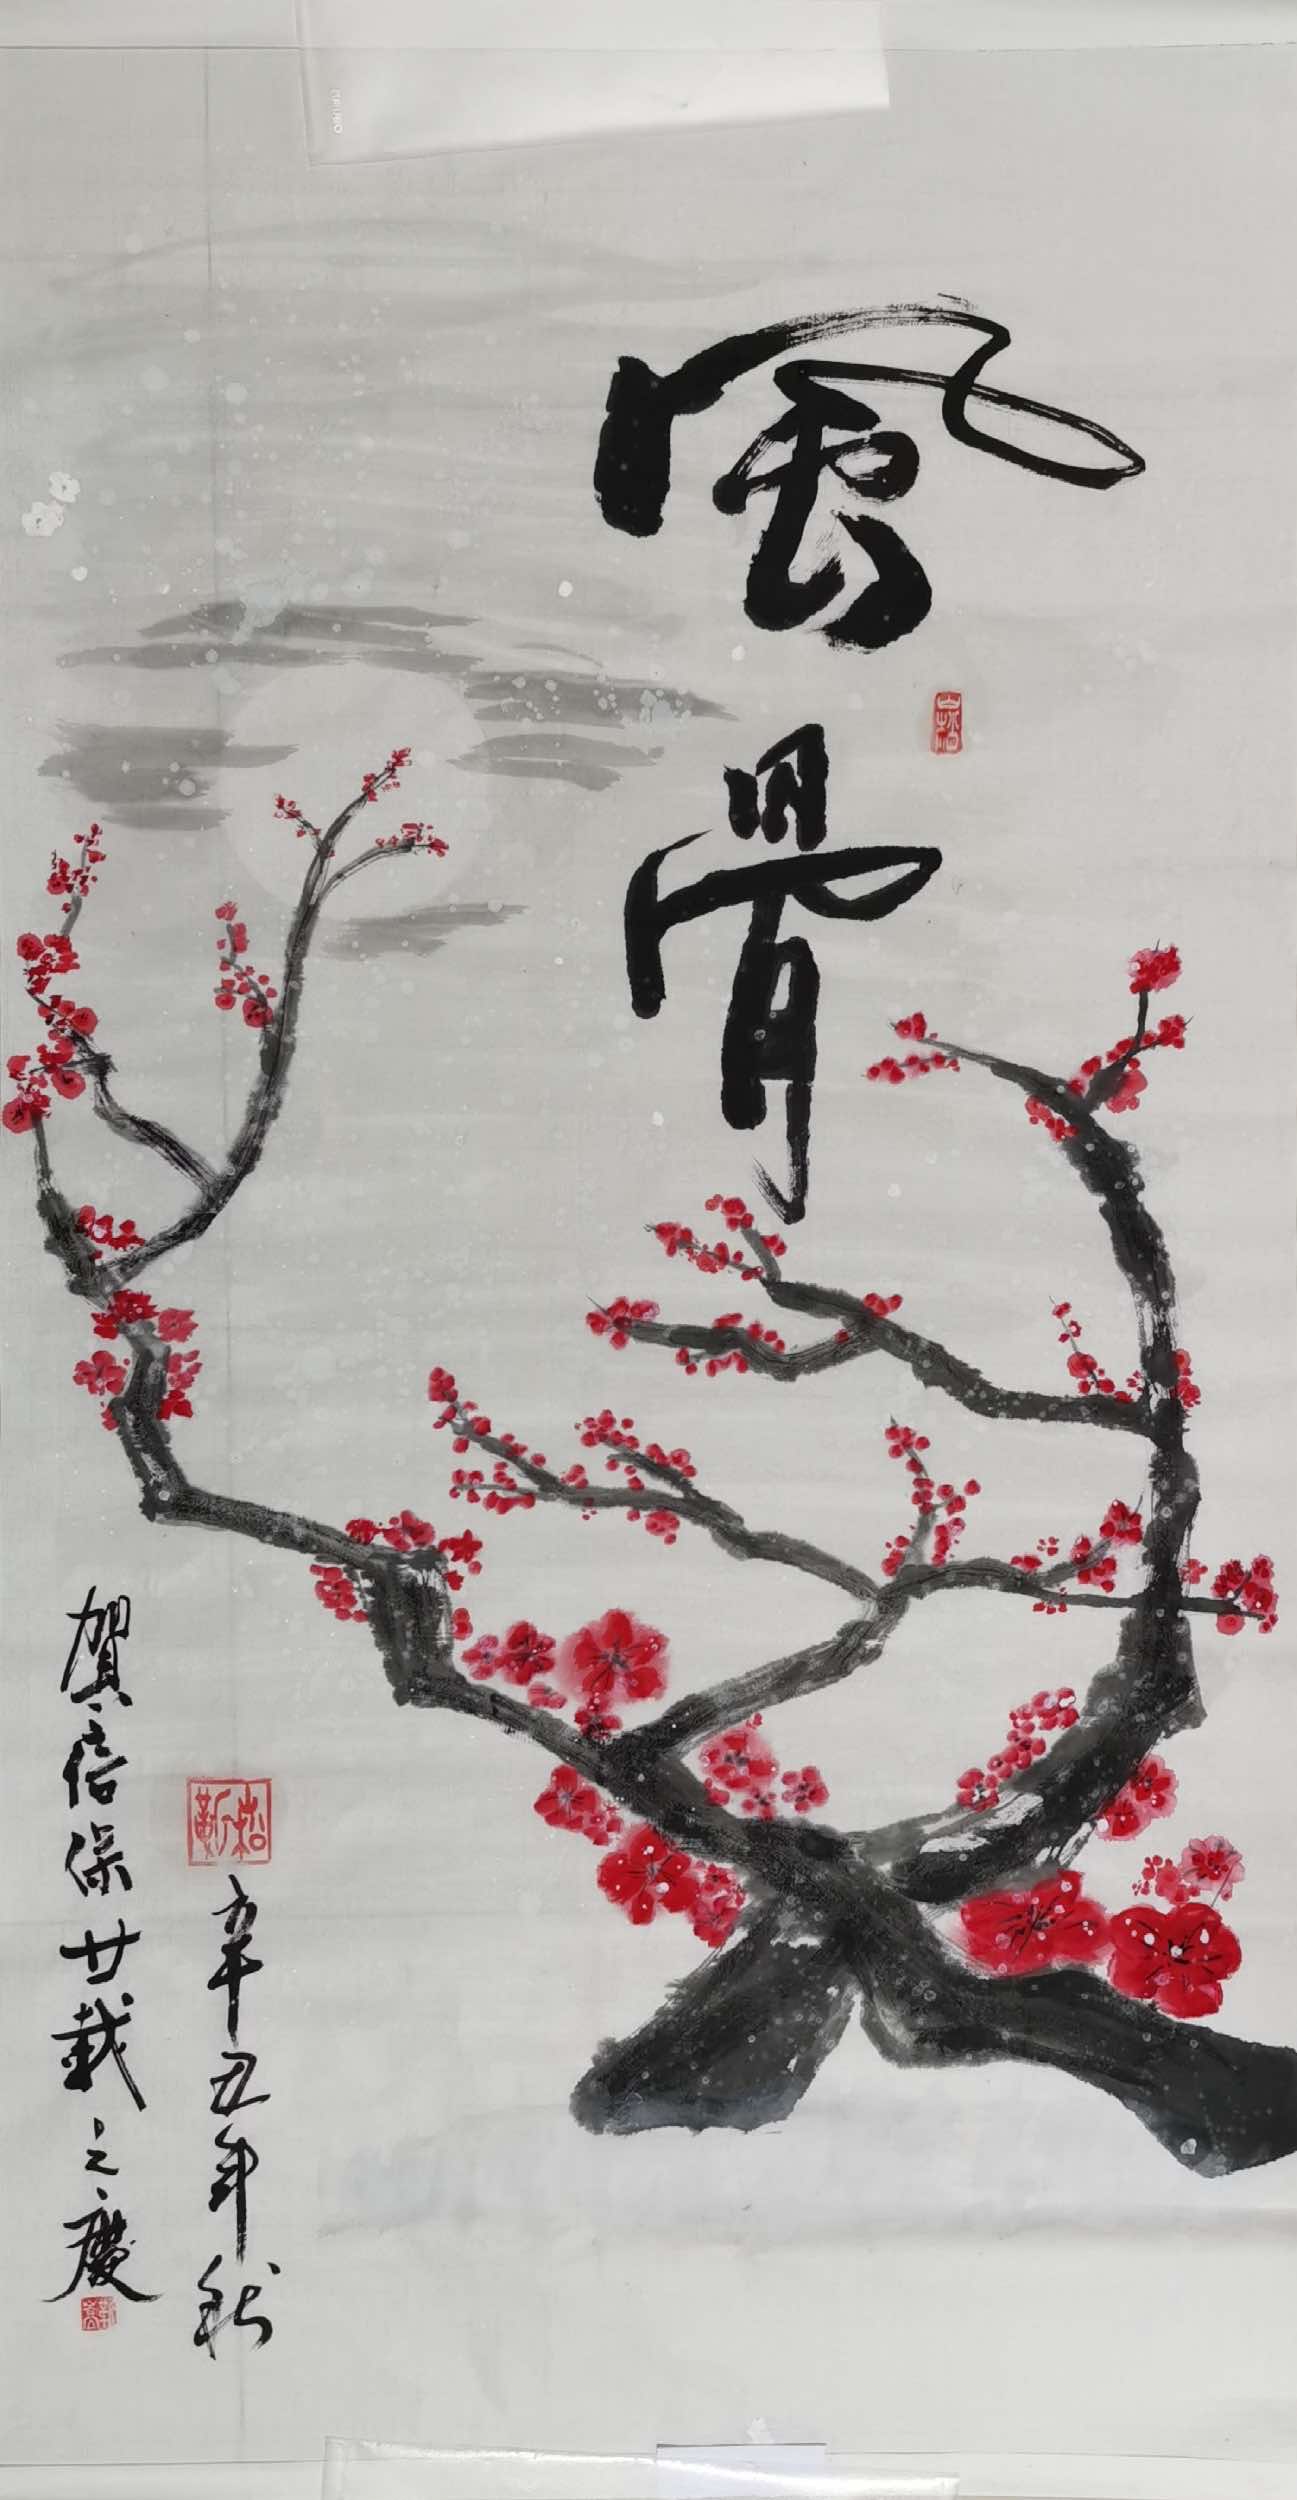 風骨
賀倍保廿載之慶
辛丑年秋